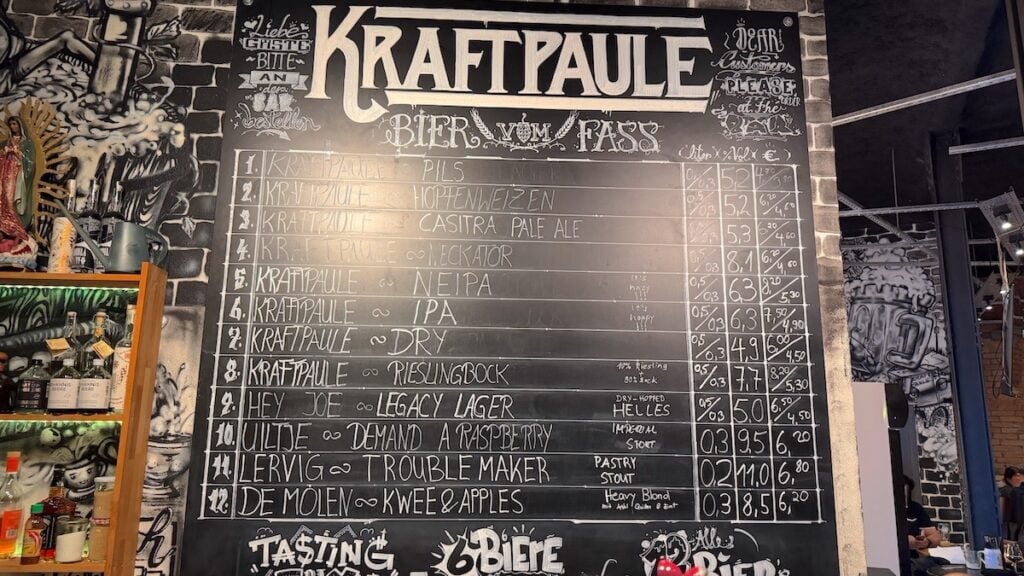 Liebe
Gäste
BITTE
AN
der
BAR
bestellen
KRAFTPAULE
DEAR
Customers
PLEASE
order
at the
BIER VOM FASS
Liter % Vol €
1. KRAFTPAULE PILS 5,2
2. KRAFTPAULE ~ HOPFENWEIZEN 5,2
3. KRAFTPAULE ~ CASITRA PALE ALE 5,3
4. KRAFTPAULE ~ NECKATOR 8,1
5. KRAFTPAULE ~ NEIPA 0,5/0,3 6,3 8,20/5,30
6. KRAFTPAULE ~ IPA 0,5/0,3 6,3 7,50/4,90
7. KRAFTPAULE ~ DRY 0,5/0,3 4,9 6,00/4,50
8. KRAFTPAULE ~ RIESLINGBOCK 0,5/0,3 7,7 8,20/5,30
9. HEY JOE ~ LEGACY LAGER DRY-HOPPED HELLES 0,5/0,3 5,0 6,50/4,50
10. UILTJE ~ DEMAND A RASPBERRY IMPERIAL STOUT 0,3 9,5 6,20
11. LERVIG ~ TROUBLEMAKER PASTRY STOUT 0,2 11,0 6,80
12. DE MOLEN ~ KWEE & APPLES Heavy Blond 0,3 8,5 6,20
TASTING
6 BIERE
Alle
BIER